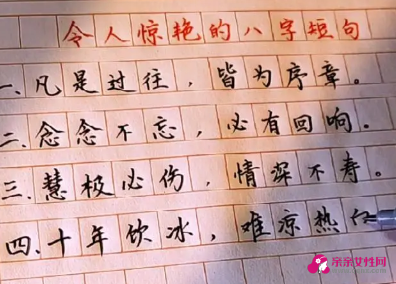 令人惊艳的八字短句
一、凡是过往，皆为序章。
二、念念不忘，必有回响。
三、慧极必伤，情深不寿。
四、十年饮冰，难凉热
亲亲女性网